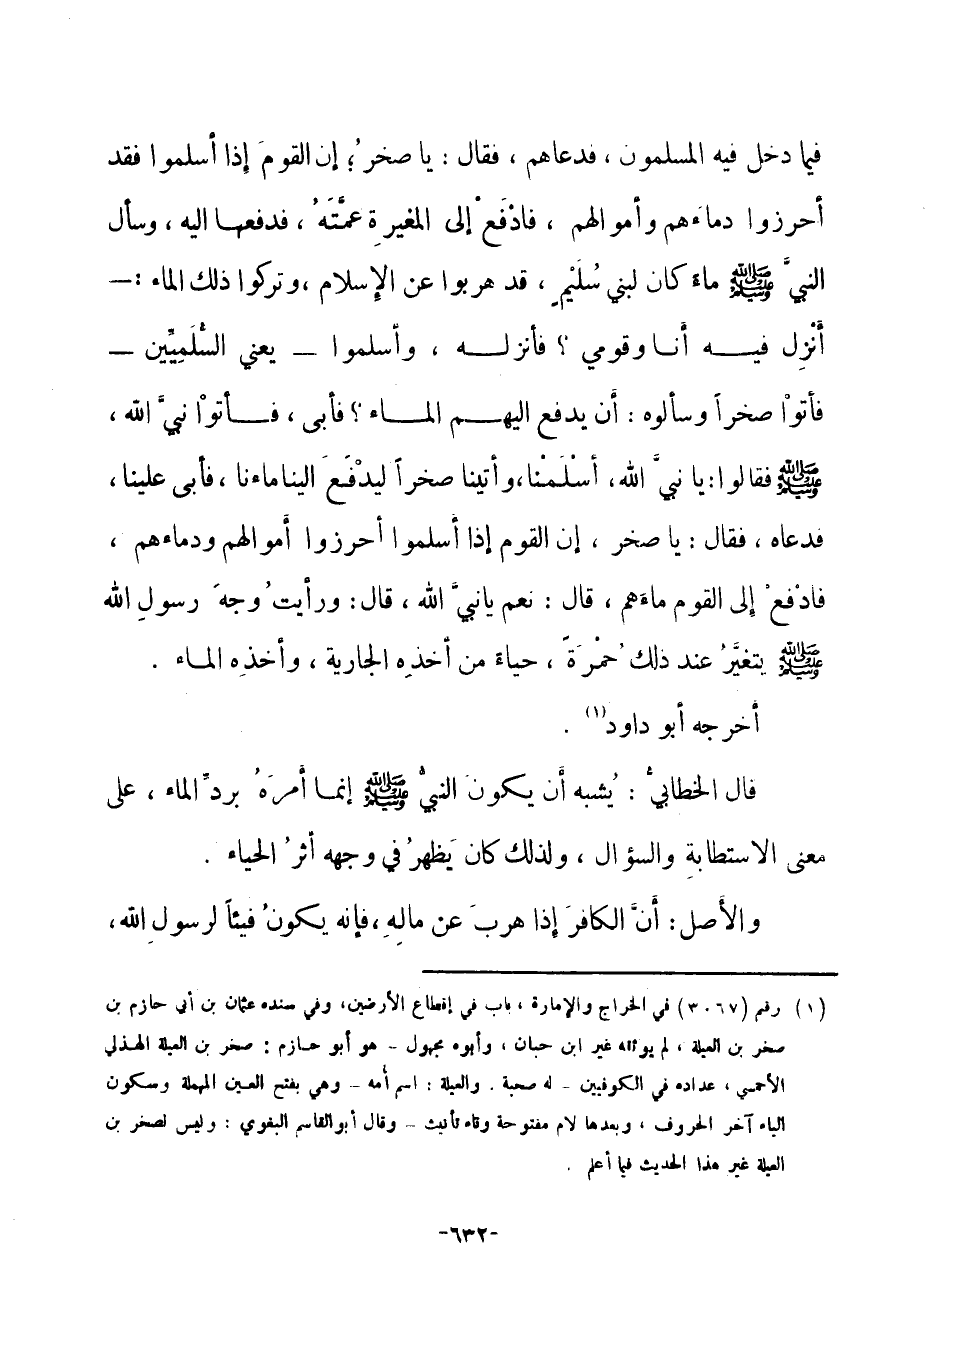 فيما دخل فيه المسلمون ، فدعاهم ، فقال : يا صخرُ ؛ إن القومَ إذا أسلموا فقد
أحرزوا دماءَهم وأموالهم ، فادْفَعْ إلى المغيرةِ عمَّتَهُ ، فدفعها اليه ، وسأل
النبيَّ ﷺ ماءً كان لبني سُلَيْمٍ ، قد هربوا عن الإسلام ، وتركوا ذلك الماء :–
أَنْزِل فيه أنا وقومي ؟ فأنزله ، وأسلموا – يعني السُّلَمِيِّين –
فأتوْا صخراً وسألوه : أن يدفع اليهم الماء ؟ فأبى ، فأتوْا نبيَّ الله ،
ﷺ فقالوا : يا نبيَّ الله ، أسْلَمْنا ، وأتينا صخراً ليدْفَعَ الينا ماءنا ، فأبى علينا ،
فدعاه ، فقال : يا صخر ، إن القوم إذا أسلموا أحرزوا أموالهم ودماءهم ،
فادْفعْ إلى القوم ماءَهم ، قال : نعم يانبيَّ الله ، قال : ورأيتُ وجهَ رسولِ الله
ﷺ يتغيَّرُ عند ذلك حُمْرَةً ، حياءً من أخذِه الجارية ، وأخذِه الماء .
أخرجه أبو داود(١) .
قال الخطابيُّ : يُشبه أن يكونَ النبيُّ ﷺ إنما أمرَهُ بردِّ الماء ، على
معنى الاستطابةِ والسؤال ، ولذلك كان يَظهرُ في وجهه أثرُ الحياء .
والأصل : أنَّ الكافرَ إذا هربَ عن مالِهِ ، فإنه يكونُ فيئاً لرسولِ الله ،
(١) رقم (٣٠٦٧) في الخراج والإمارة ، باب في إقطاع الأرضين ، وفي سنده عثمان بن أبي حازم بن
صخر بن العيلة ، لم يوثقه غير ابن حبان ، وأبوه مجهول – هو أبو حازم : صخر بن العيلة الهذلي
الأحمسي ، عداده في الكوفيين – له صحبة . والعيلة : اسم أمه – وهي بفتح العين المهملة وسكون
الياء آخر الحروف ، وبعدها لام مفتوحة وتاء تأنيث – وقال أبو القاسم البغوي : وليس لصخر بن
العيلة غير هذا الحديث فيما أعلم .
-٦٣٢-